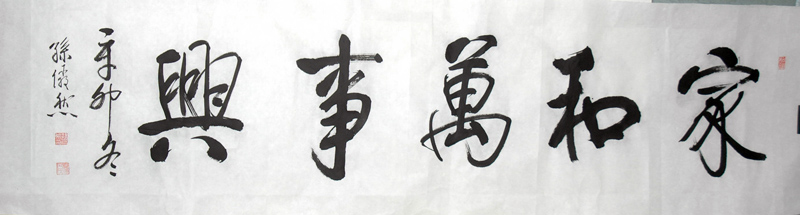 家和萬事興
辛卯冬
孫儀然